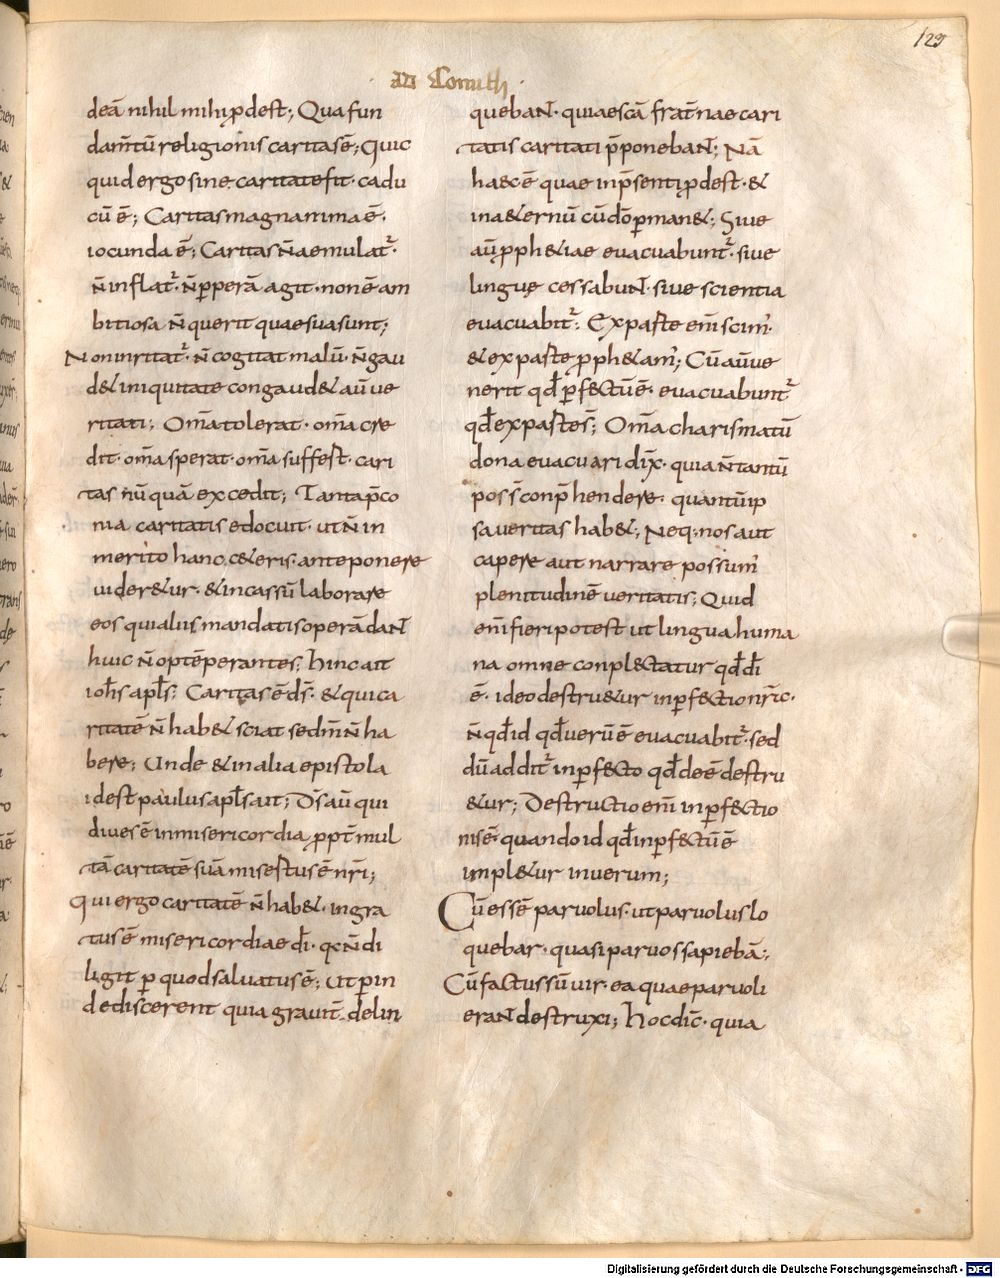 129
AD Corinth.
deā nihil mihi ꝓdest; Qua fun
dam̅tū religionis caritas ē; Quic
quid ergo sine caritate fit· cadu
cū ē; Caritas magnanima ē·
iocunda ē; Caritas n̅ aemulat᷑·
n̅ inflat᷑· n̅ ꝑperā agit· non ē am
bitiosa n̅ querit quae sua sunt;
Non inritat᷑· n̅ cogitat malū· n̅ gau
d& iniquitate congaud& aūt ve
ritati; Om̅a tolerat· om̅a cre
dit· om̅a sperat· om̅a suffest· cari
tas nūquā excedit; Tanta p̄co
nia caritatis edocuit· ut n̅ in
merito hanc c&eris anteponere
uider&ur· & incassū laborare
eos qui aliis mandatis operā daNT
huic n̅ optēperantes; hinc ait
ioh̅s apl̅s; Caritas ē d̅s· & qui ca
ritatē n̅ hab& sciat se dm̅ n̅ ha
bere; Unde & in alia epistola
idest paulus apl̅s ait; D̅s aū qui
diues ē in misericordia ꝓpt̄ mul
tā caritatē suā misestus ē nr̅i;
Qui ergo caritatē n̅ hab&· ingra
tus ē misericordiae dī· qm̅ n̅ di
ligit ꝑ quod saluatus ē; Ut ꝑ in
de discerent quia grauit̄ delin
quebaNT· qui aescā frat̄nae cari
tatis caritati p̄ponebaNT; Nā
haec ē quae in p̄senti ꝓdest· &
in a&ernū cū dō ꝑman&; Siue
aū ꝓph&iae evacuabunt᷑· siue
linguę cessabuNT· siue scientia
euacuabit᷑; Ex paste em̅ scim᷒·
& ex paste ꝓph&am᷒; Cū aū ue
nerit qd̅ ꝑf&ctū ē· euacuabunt᷑
qd̅ ex past ē; Om̅a charismatū
dona evacuari dix̅· quia n̅ tantū
poss̅ conp̄hendere· quantū ip
sa veritas hab&; Neq; nos aut
capere aut narrare possum᷒
plenitudinē veritatis; Quid
em̅ fieri potest ut lingua huma
na omne conpl&ctatur qd̅ dī
ē· ideo destru&ur inꝑf&ctio nr̅ā·
n̅ qd̅ id qd̅ verū ē evacuabit᷑· sed
dū addit᷑ inꝑf&cto qd̅ deē destru
&ur; Destructio em̅ inꝑf&ctio
nis ē· quando id qd̅ inꝑf&ctū ē
impl&ur in verum;
Cū essē parvolus· ut parvolus lo
quebar· quasi parvos sapiebā;
Cū factus sū vir· ea quae parvoli
eraNT destruxi; hoc dic̄· quia
Digitalisierung gefördert durch die Deutsche Forschungsgemeinschaft - DFG